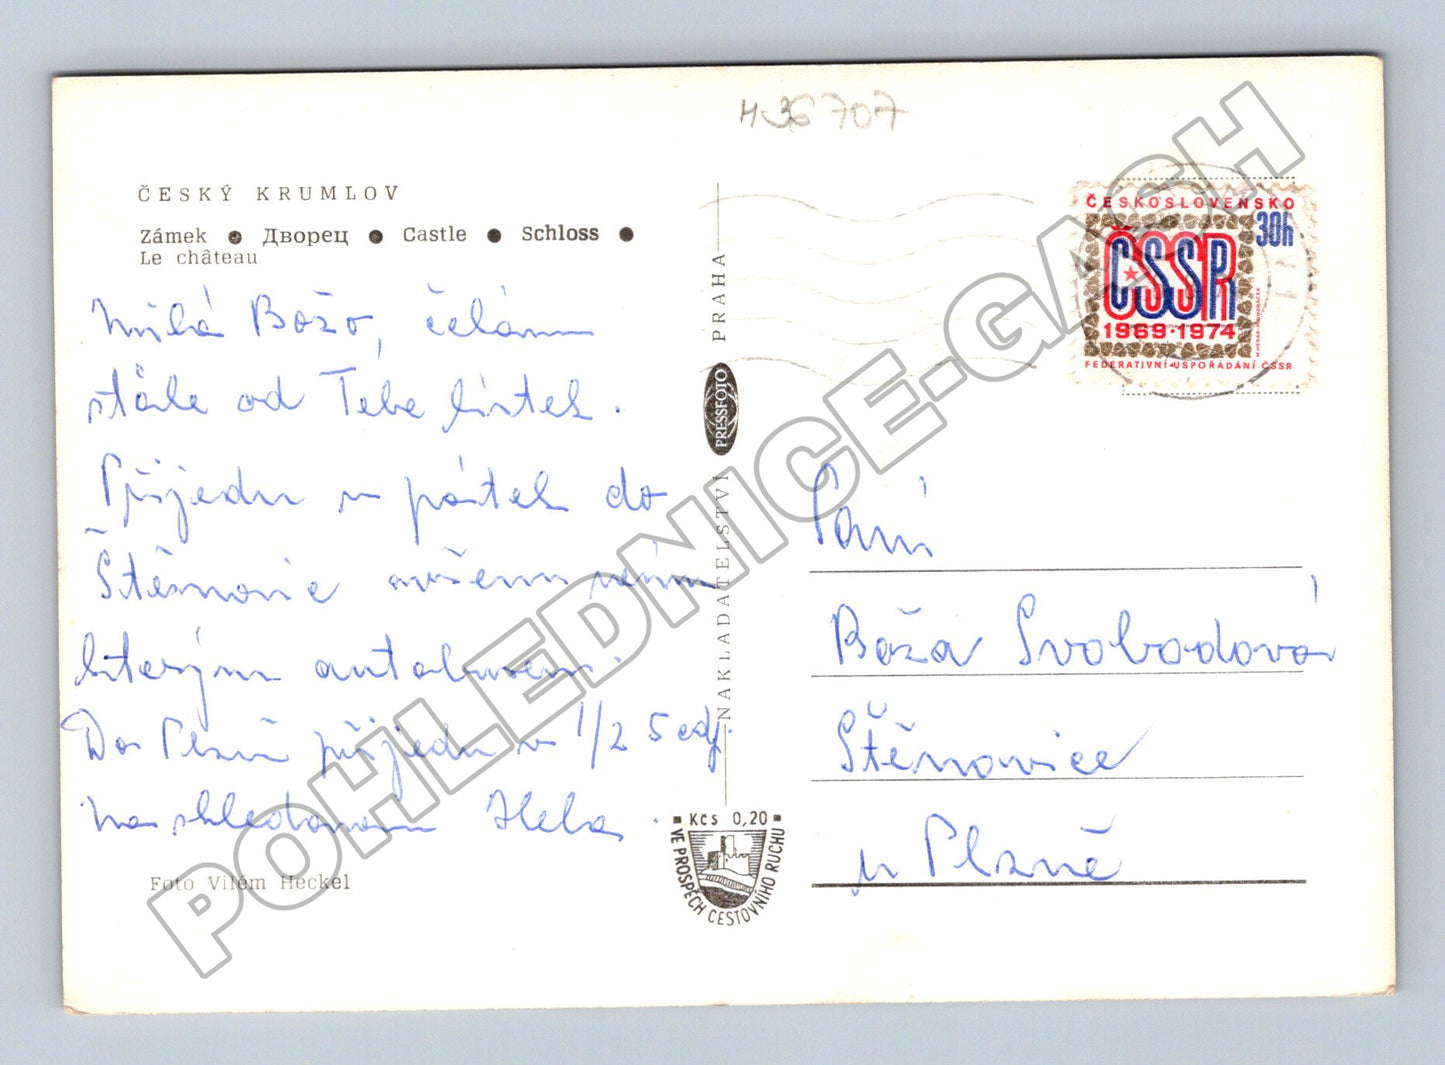 H 36 707
ČESKÝ KRUMLOV
Zámek ● Дворец ● Castle ● Schloss ●
Le château
Milá Božo, čekám
stále od Tebe lístek.
Přijedu v pátek do
Štěnovic
kterým autobusem.
Do Plzně přijedu v 1/2 5 odp.
Na shledanou Helena
Foto Vilém Heckel
NAKLADATELSTVÍ PRESSFOTO PRAHA
Kčs 0,20
VE PROSPĚCH CESTOVNÍHO RUCHU
ČESKOSLOVENSKO
30h
ČSSR
1969·1974
FEDERATIVNÍ USPOŘÁDÁNÍ ČSSR
Paní
Boža Svobodová
Štěnovice
u Plzně
POHLEDNICE-GASH